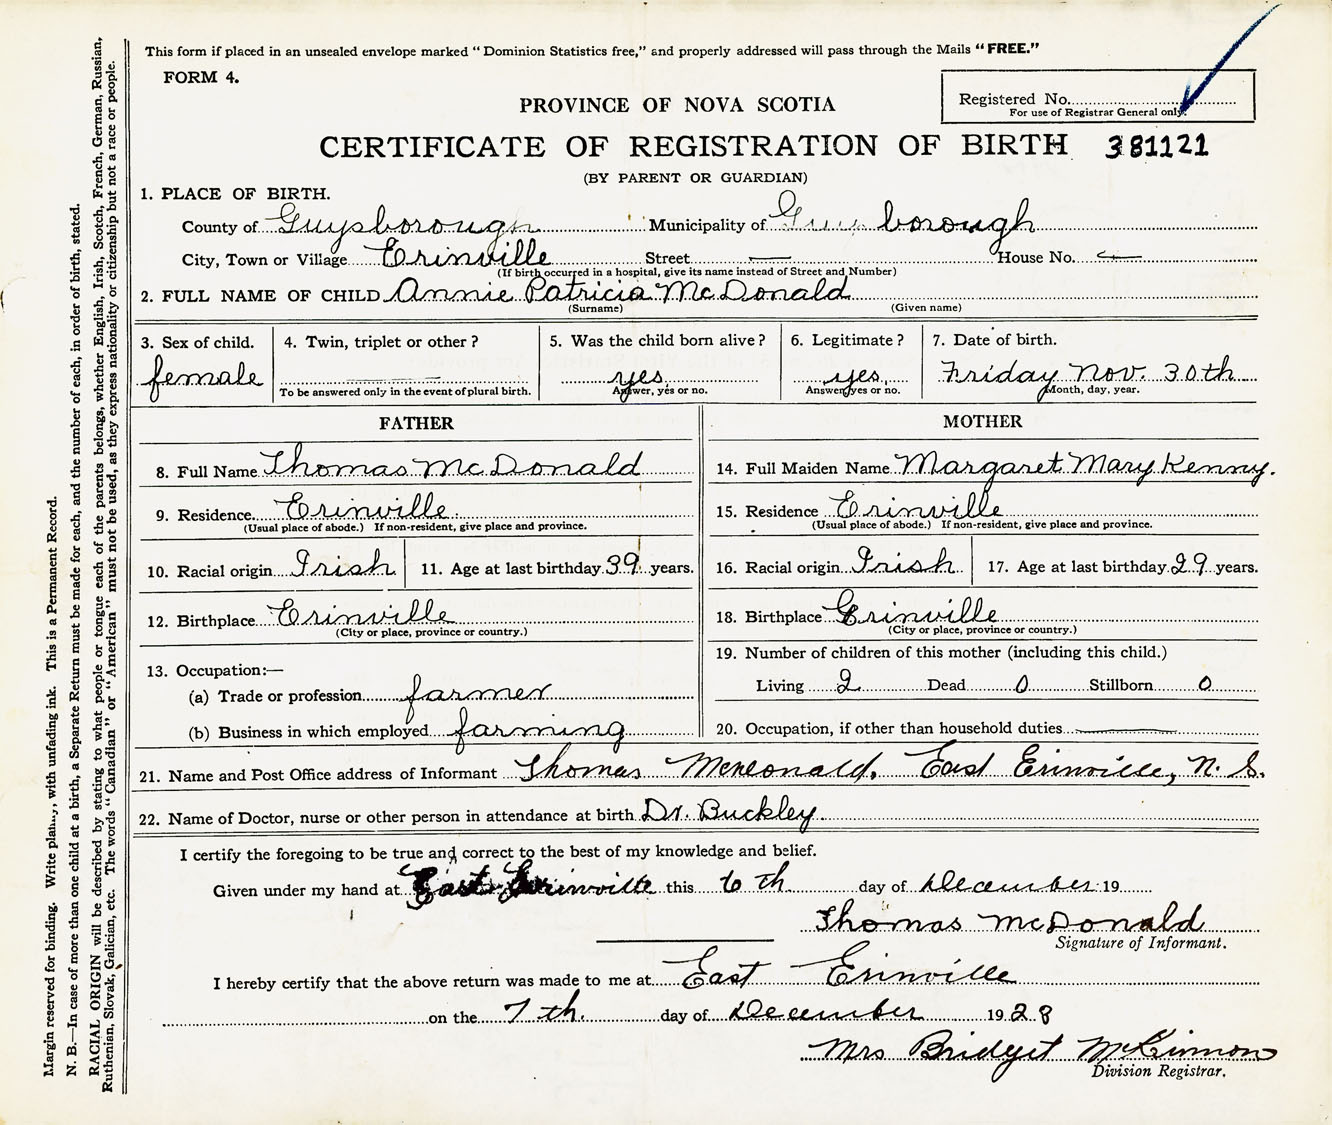 This form if placed in an unsealed envelope marked "Dominion Statistics free," and properly addressed will pass through the Mails "FREE."
FORM 4.
Registered No.
For use of Registrar General only.
PROVINCE OF NOVA SCOTIA
CERTIFICATE OF REGISTRATION OF BIRTH 381121
(BY PARENT OR GUARDIAN)
1. PLACE OF BIRTH.
County of Guysborough Municipality of Guysborough
City, Town or Village Erinville Street — House No. —
(If birth occurred in a hospital, give its name instead of Street and Number)
2. FULL NAME OF CHILD Annie Patricia McDonald
(Surname) (Given name)
3. Sex of child. 4. Twin, triplet or other? 5. Was the child born alive? 6. Legitimate? 7. Date of birth.
female yes yes Friday Nov. 30th
To be answered only in the event of plural birth. Answer, yes or no. Answer, yes or no. Month, day, year.
FATHER MOTHER
8. Full Name Thomas McDonald 14. Full Maiden Name Margaret Mary Kenny.
9. Residence Erinville 15. Residence Erinville
(Usual place of abode.) If non-resident, give place and province. (Usual place of abode.) If non-resident, give place and province.
10. Racial origin Irish 11. Age at last birthday 39 years. 16. Racial origin Irish 17. Age at last birthday 29 years.
12. Birthplace Erinville 18. Birthplace Erinville
(City or place, province or country.) (City or place, province or country.)
13. Occupation:— 19. Number of children of this mother (including this child.)
(a) Trade or profession farmer Living 2 Dead 0 Stillborn 0
(b) Business in which employed farming 20. Occupation, if other than household duties —
21. Name and Post Office address of Informant Thomas McDonald, East Erinville, N. S.
22. Name of Doctor, nurse or other person in attendance at birth Dr. Buckley
I certify the foregoing to be true and correct to the best of my knowledge and belief.
Given under my hand at East Erinville this 6th day of December 19
Thomas McDonald
Signature of Informant.
I hereby certify that the above return was made to me at East Erinville
on the 7th. day of December 1928
Mrs Bridget McKinnon
Division Registrar.
Margin reserved for binding. Write plainly, with unfading ink. This is a Permanent Record.
N. B.—In case of more than one child at a birth, a Separate Return must be made for each, and the number of each, in order of birth, stated.
RACIAL ORIGIN will be described by stating to what people or tongue each of the parents belongs, whether English, Irish, Scotch, French, German, Russian,
Ruthenian, Slovak, Galician, etc. The words "Canadian" or "American" must not be used, as they express nationality or citizenship but not a race or people.